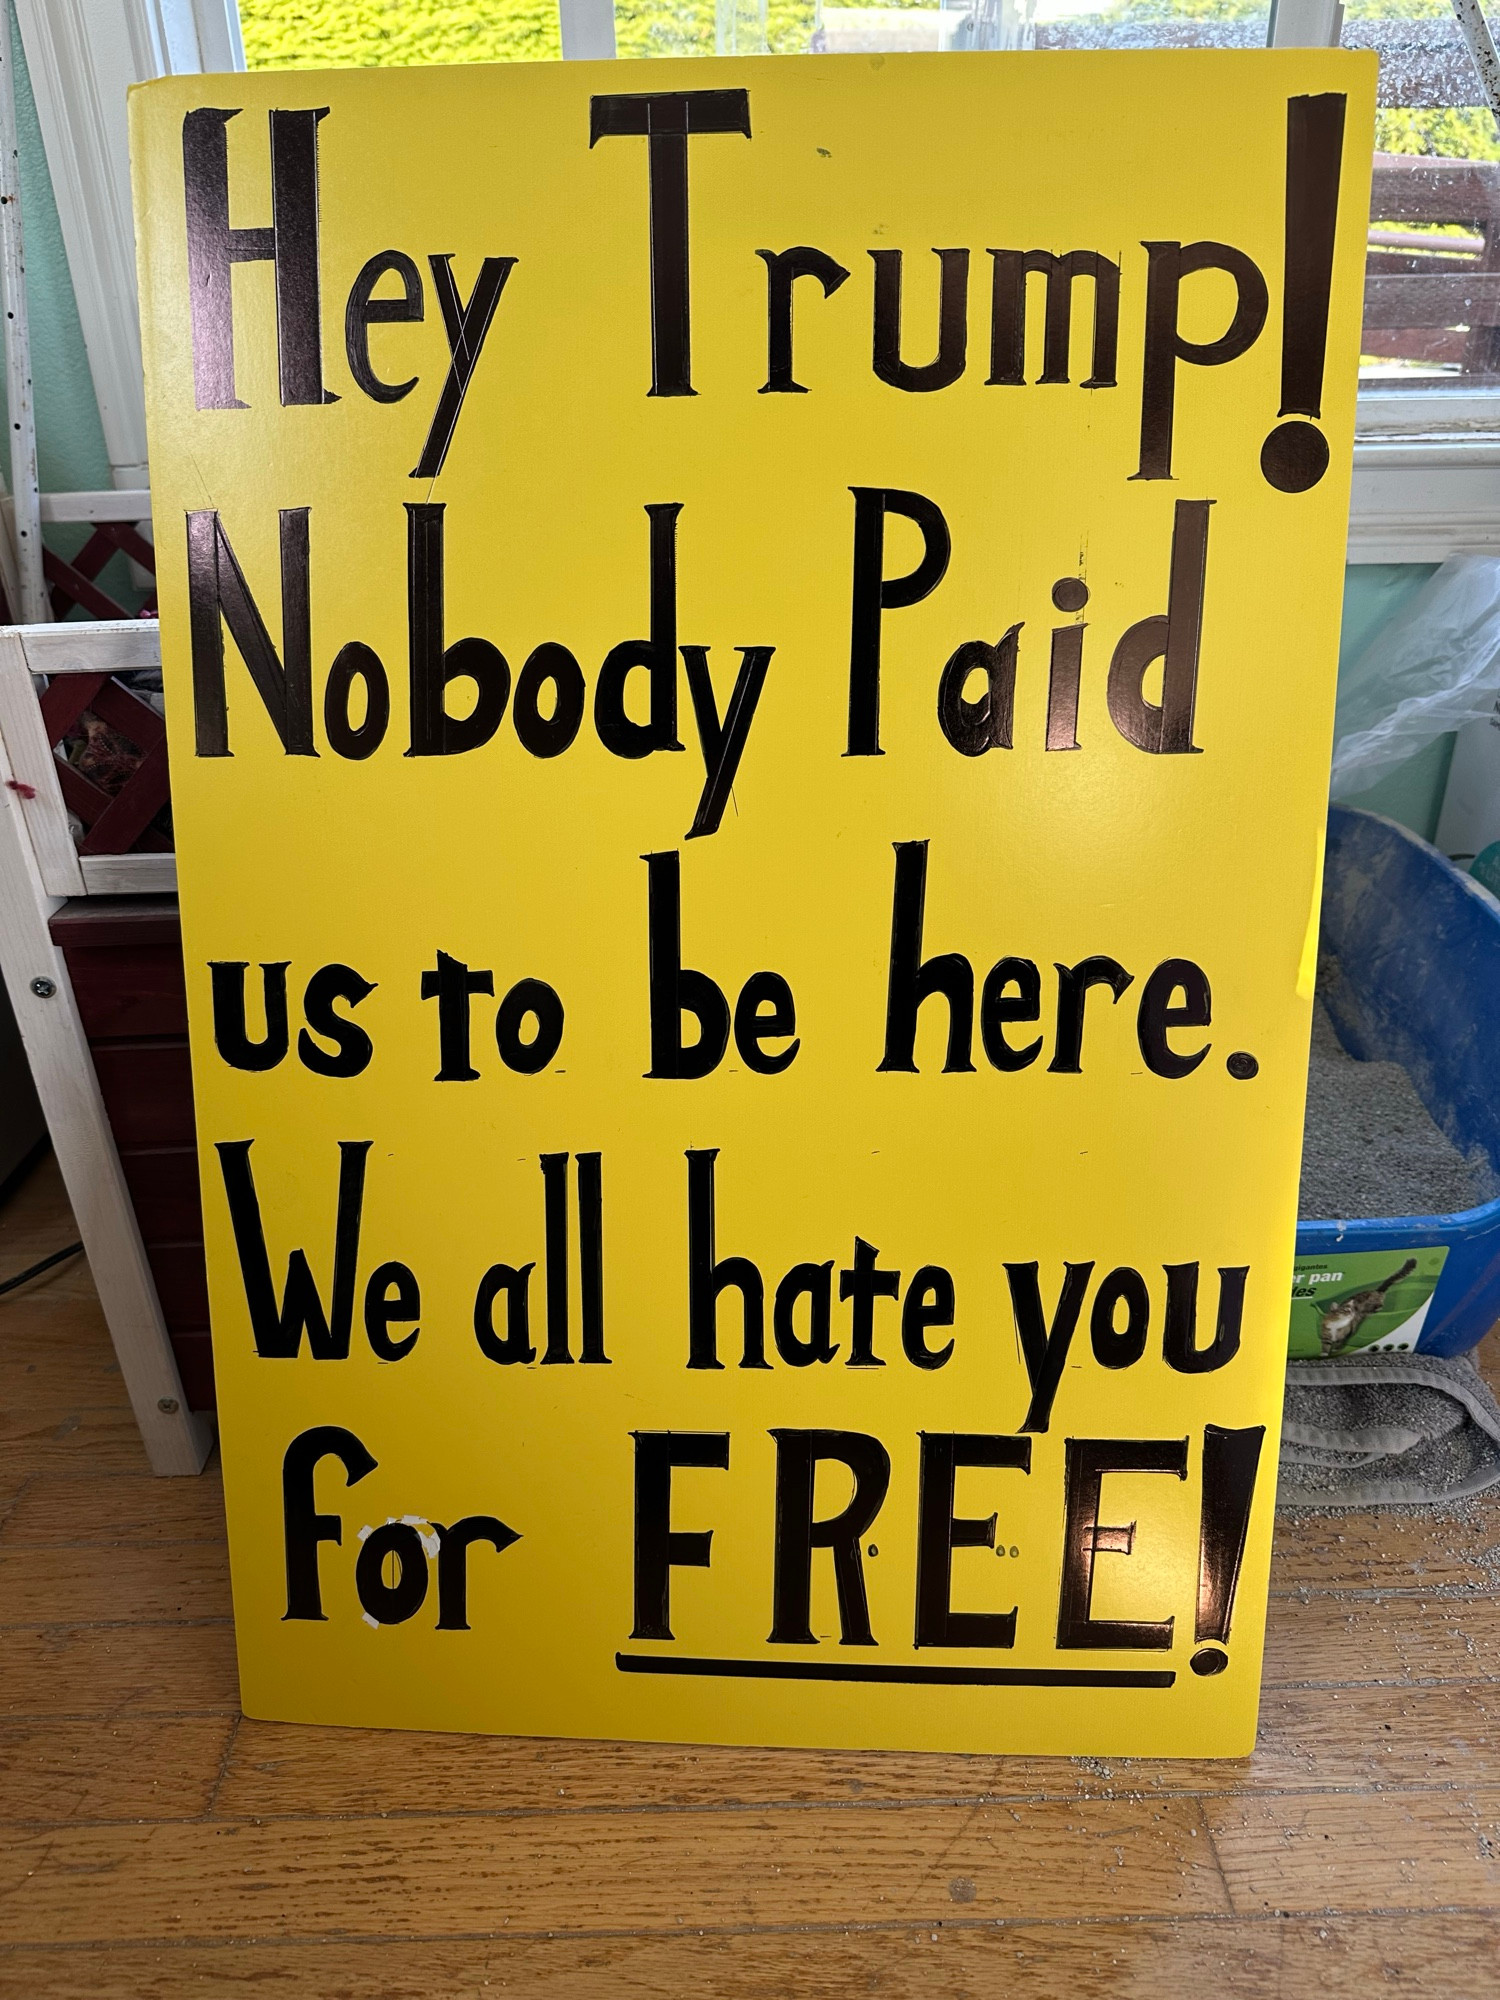 Hey Trump!
Nobody Paid
us to be here.
We all hate you
for FREE!
r pan